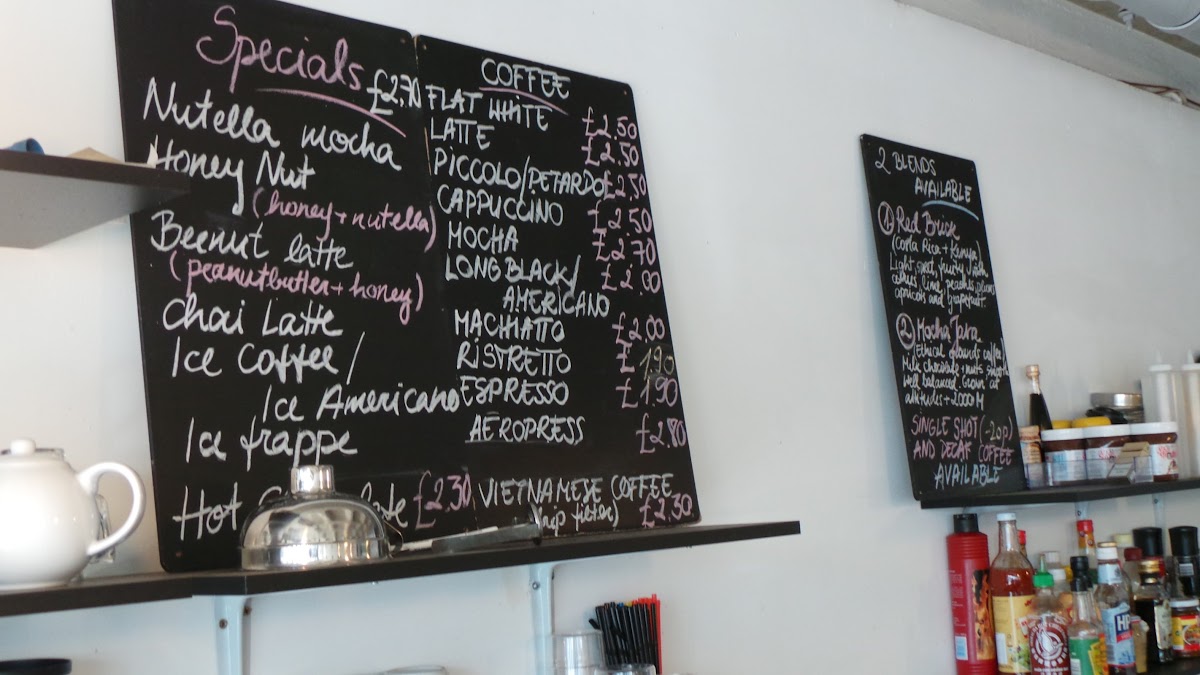 Specials £2.70
Nutella mocha
Honey Nut
(honey + nutella)
Beenut latte
(peanutbutter + honey)
Chai Latte
Ice Coffee /
Ice Americano
Ice frappe
Hot £2.30
COFFEE
FLAT WHITE £2.50
LATTE £2.50
PICCOLO/PETARDO £2.50
CAPPUCCINO £2.50
MOCHA £2.70
LONG BLACK/ £2.00
AMERICANO
MACHIATTO £2.00
RISTRETTO £1.90
ESPRESSO £1.90
AEROPRESS £2.80
VIETNAMESE COFFEE
filter) £2.30
2 BLENDS
AVAILABLE
① Red Brick
(Costa Rica + Kenya)
Light, sweet, fruity with
lime, peaches, plums,
apricots and grapefruit.
② Mocha Java
(Ethical grounds coffee)
Milk chocolate + nuts, smooth
Well balanced. Grown at
altitudes +2000M
SINGLE SHOT (-20p)
AND DECAF COFFEE
AVAILABLE
HP